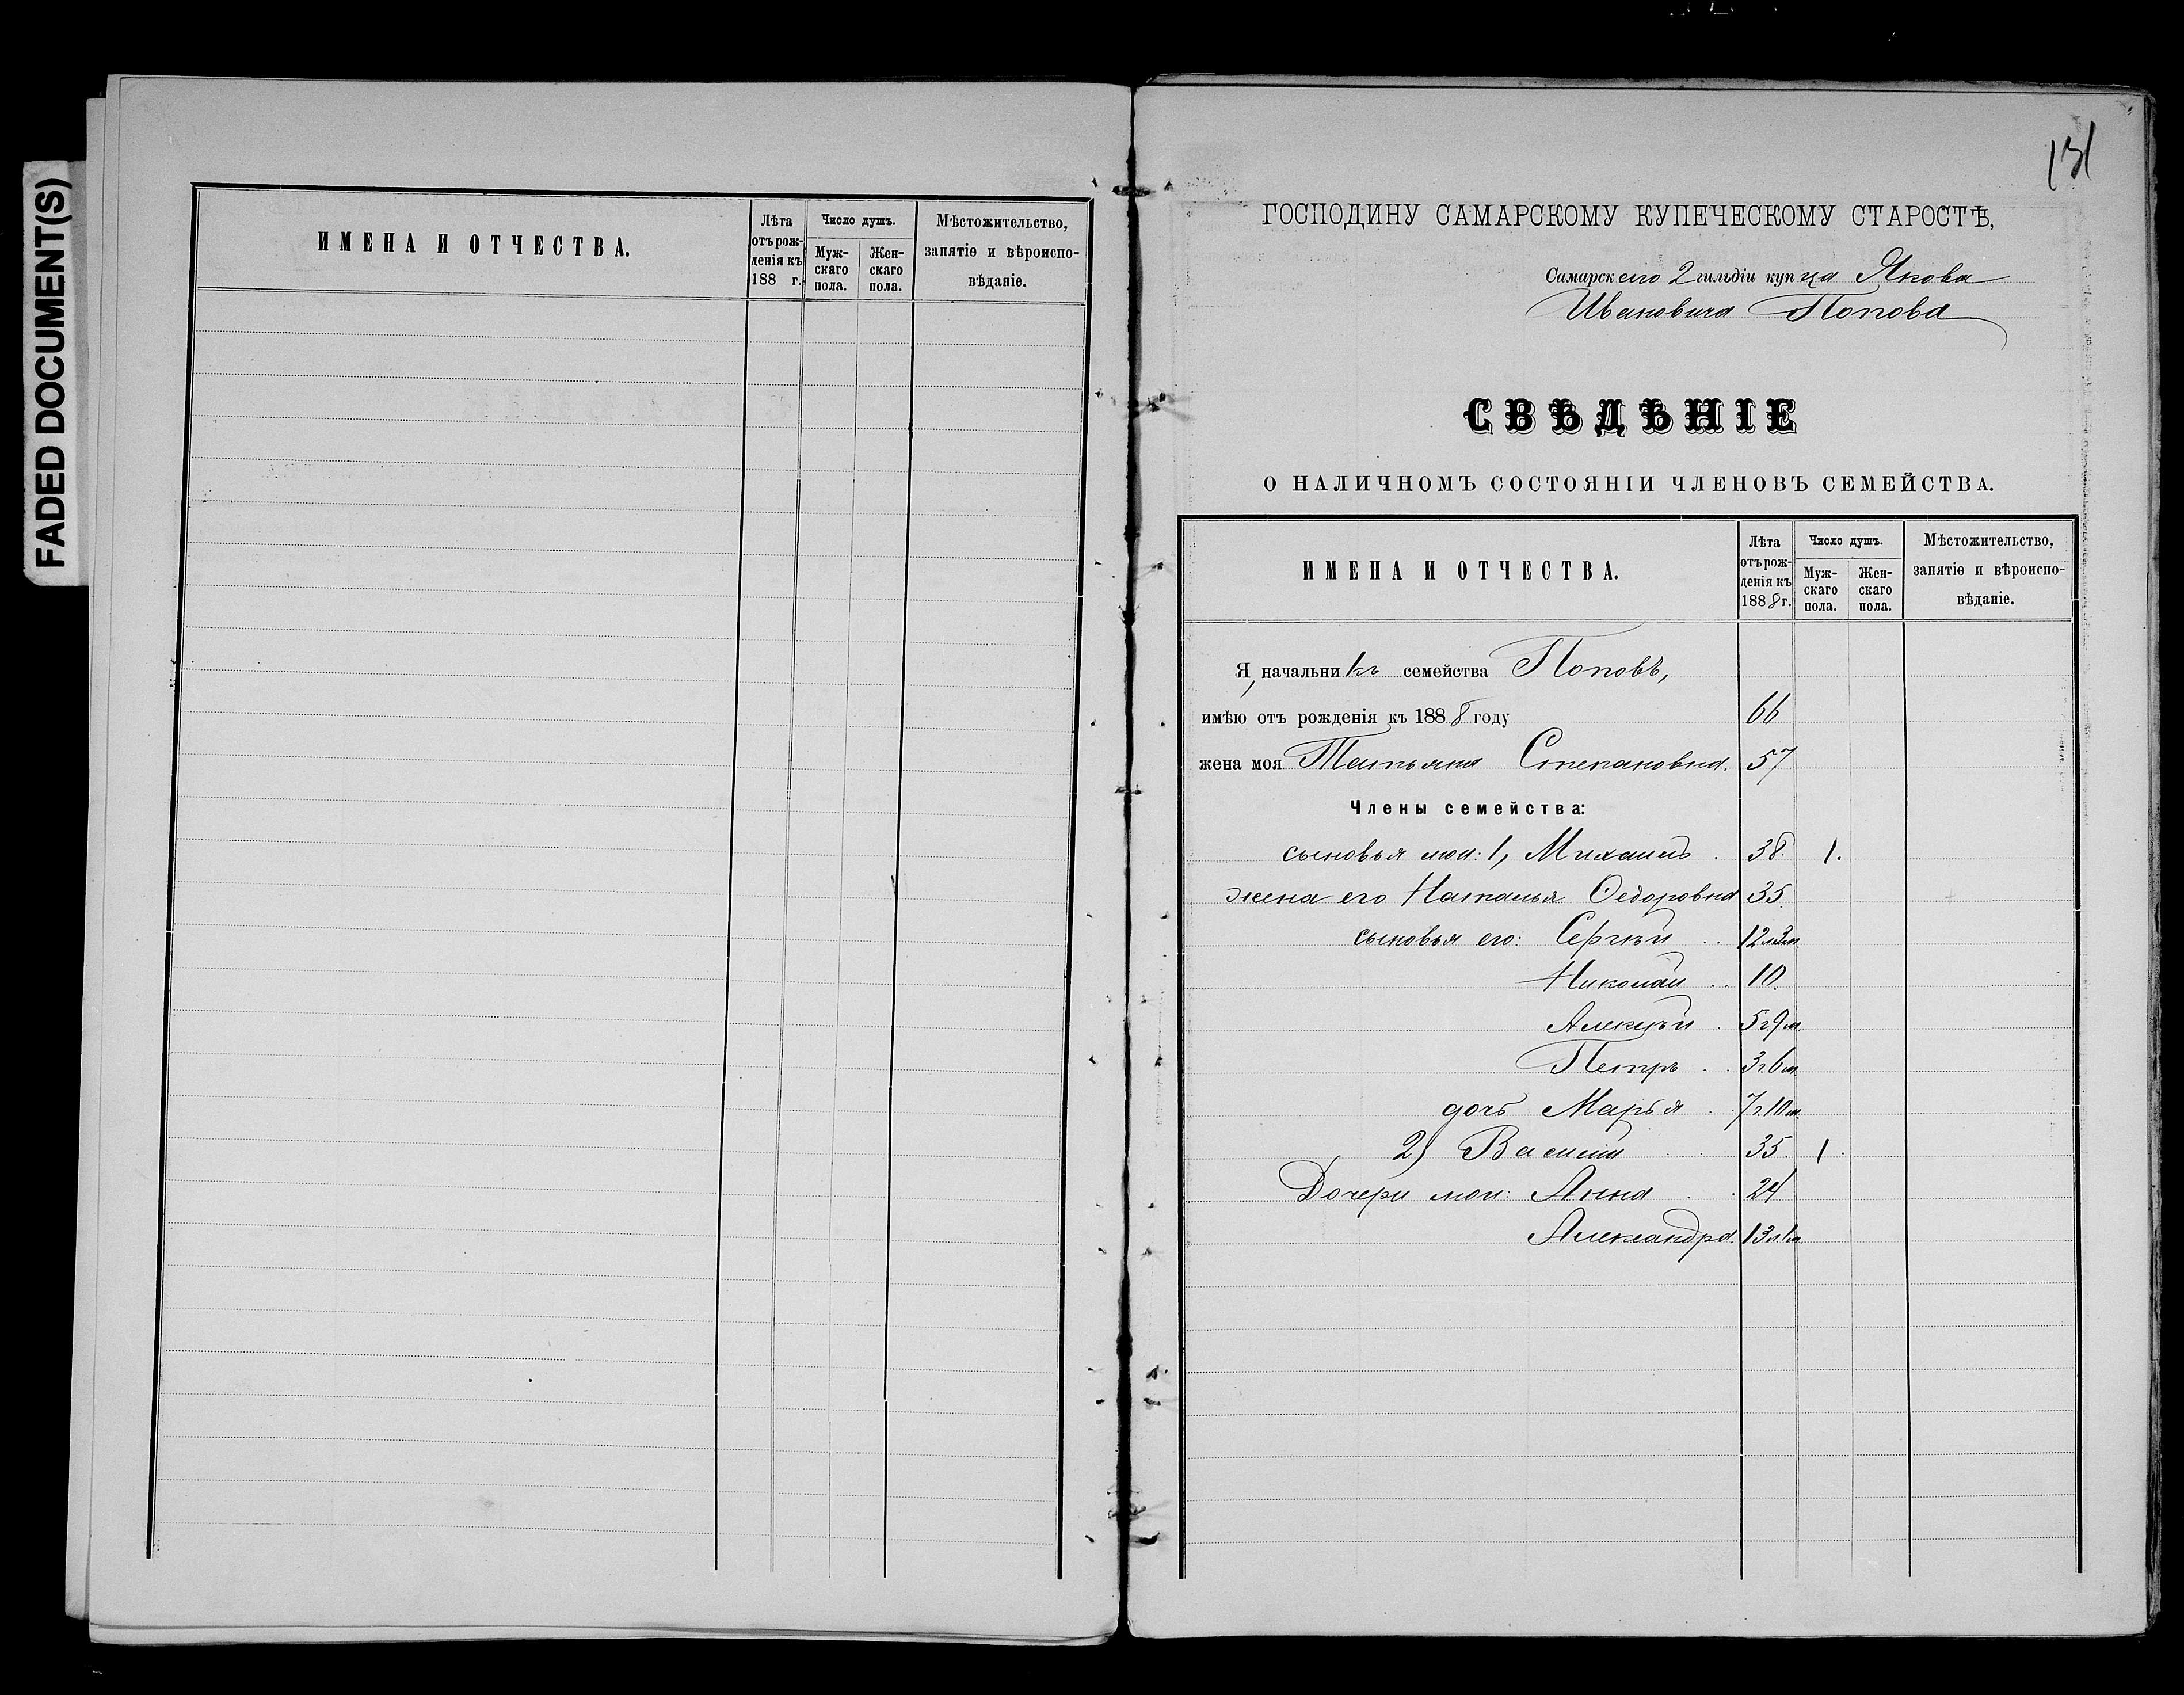 FADED DOCUMENT(S)
ИМЕНА И ОТЧЕСТВА.
Лѣта отъ рожденія къ 188 г.
Число душъ.
Мужскаго пола.
Женскаго пола.
Мѣстожительство, занятіе и вѣроисповѣданіе.
131
ГОСПОДИНУ САМАРСКОМУ КУПЕЧЕСКОМУ СТАРОСТѢ,
Самарскаго 2 гильдіи купца Якова
Ивановича Попова
СВѢДѢНІЕ
О НАЛИЧНОМЪ СОСТОЯНІИ ЧЛЕНОВЪ СЕМЕЙСТВА.
ИМЕНА И ОТЧЕСТВА.
Лѣта отъ рожденія къ 1888 г.
Число душъ.
Мужскаго пола.
Женскаго пола.
Мѣстожительство, занятіе и вѣроисповѣданіе.
Я, начальникъ семейства Поповъ,
имѣю отъ рожденія къ 1888 году 66
жена моя Татьяна Степановна. 57
Члены семейства:
сыновья мои: 1, Михаилъ . 38. 1.
жена его Наталья Ѳедоровна 35.
сыновья его: Сергѣй .. 12 л 3 м
Николай .. 10.
Алексѣй . 5 г 9 м.
Петръ .. 3 г 6 м.
дочь Марья .. 7 г. 10 м.
2) Василій .. 35. 1.
Дочери мои: Анна .. 24
Александра. 13 л 1 м.